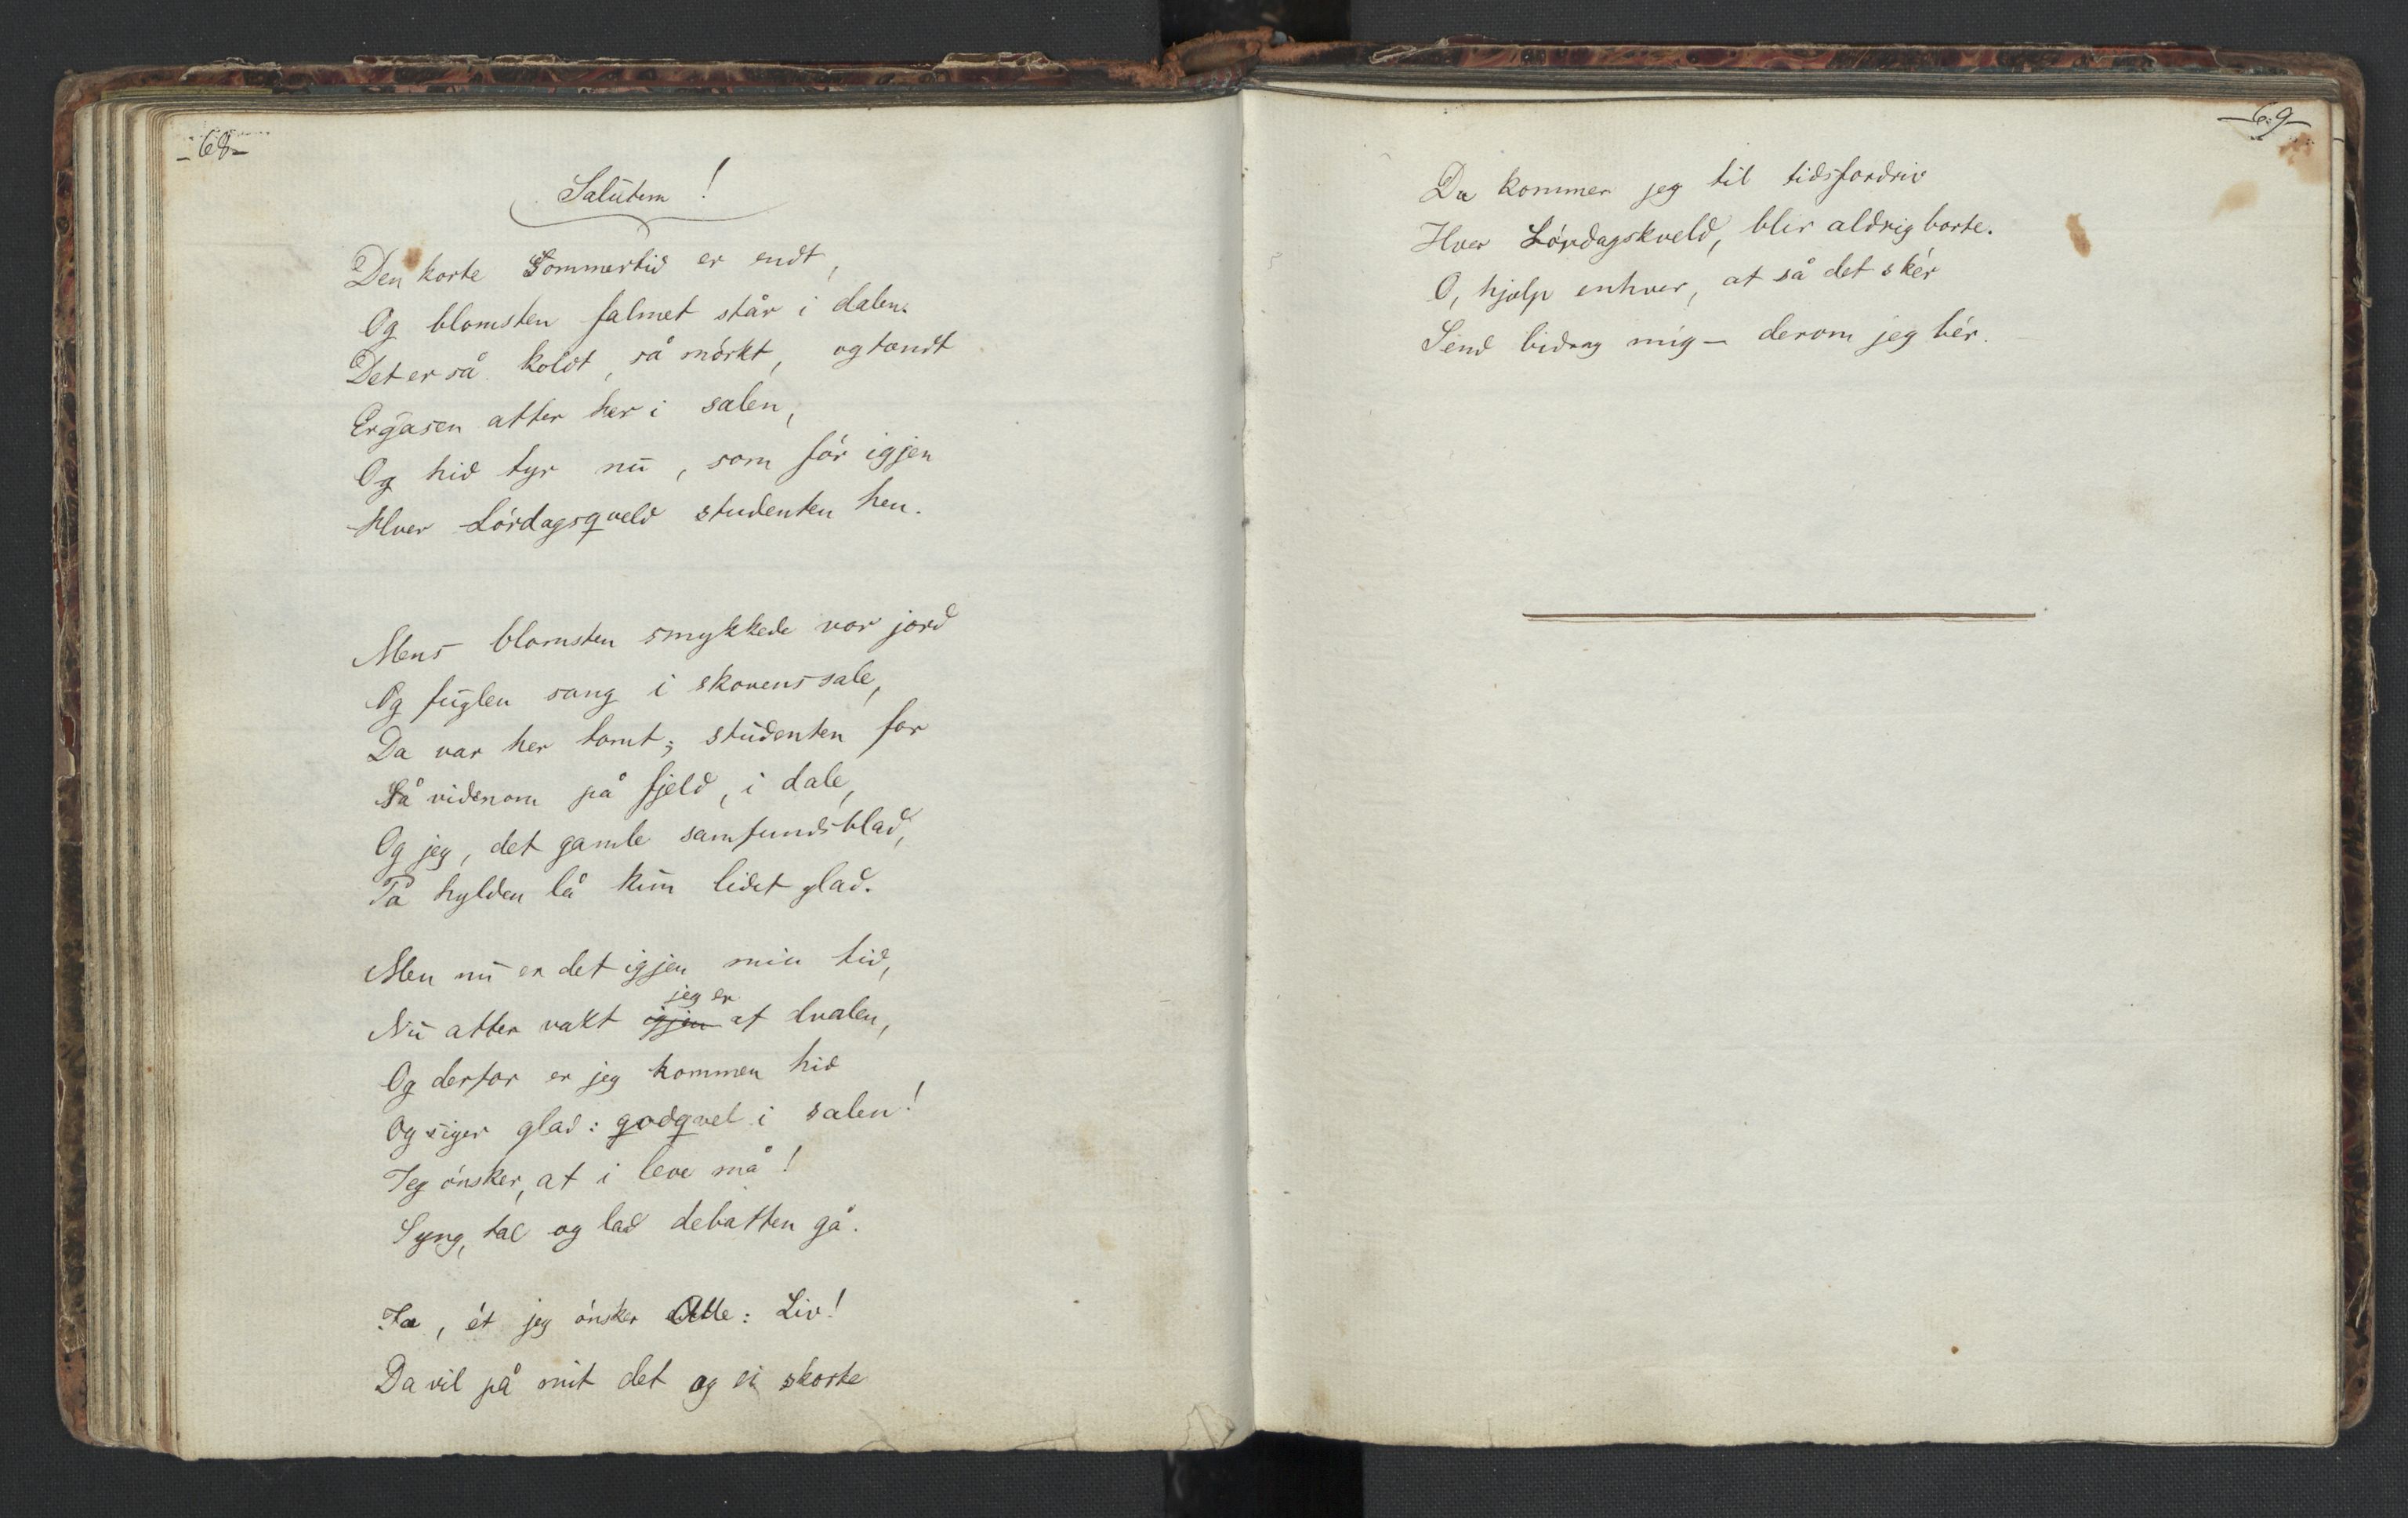 -68-
Salutem!
Den korte Sommertid er endt,
Og blomsten falmet står i dalen.
Det er så koldt, så mórkt, og tændt
Er gasen atter her i salen,
Og hid tyr nu, som fór igjen
Hver Lórdagsqveld studenten hen.
Mens blomsten smykkede vor jord
Og fuglen sang i skovens sale,
Da var her tomt; studenten for
Så videnom på fjeld, i dale,
Og jeg, det gamle samfundsblad,
På hylden lå kun lidet glad.
Men nu er det igjen min tid,
jeg er
Nu atter vakt igjen af dvalen,
Og derfor er jeg kommen hid
Og siger glad: godqvel i salen!
Jeg ónsker, at i leve må!
Syng, tal og lad debatten gå.
Ja, ét jeg ónsker Alle: Liv!
Da vil på mit det og ei skorte
-69-
Da kommer jeg til tidsfordriv
Hver Lórdagskveld, blir aldrig borte.
O, hjælp enhver, at så det skér
Send bidrag mig - derom jeg bér.